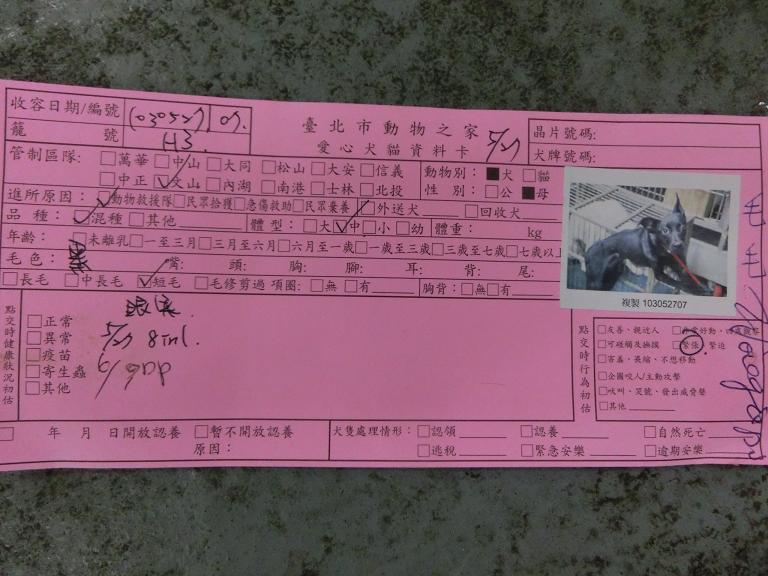 收容日期/編號 1030527 07.
臺北市動物之家 5/27
籠號 H3
愛心犬貓資料卡
晶片號碼:
犬牌號:
管制區隊: □萬華 □中山 □大同 □松山 □大安 □信義
□中正 ☑文山 □內湖 □南港 □士林 □北投
動物別: ■犬 □貓
性別: □公 ■母
進所原因: □動物救援隊 □民眾拾獲 □急傷救助 □民眾棄養 □外送犬 □回收犬
品種: ☑混種 □其他 體型: □大 ☑中 □小 □幼 體重: kg
年齡: □未離乳 □一至三月 □三月至六月 □六月至一歲 □一歲至三歲 □三歲至七歲 □七歲以上
毛色: 黑 嘴: 頭: 胸: 腳: 耳: 背: 尾:
□長毛 □中長毛 ☑短毛 □毛修剪過 項圈: □無 □有 胸背: □無 □有
複製 103052707
點交時健康狀況初估
□正常
□異常 5/27 8 in 1.
□疫苗
□寄生蟲
□其他
點交時行為初估
□友善、親近人
□可碰觸及撫摸 □緊張、緊迫
□害羞、畏縮、不想移動
□企圖咬人/主動攻擊
□吠叫、哭號、發出威脅聲
□其他
□ 年 月 日開放認養 □暫不開放認養
原因:
犬隻處理情形: □認領 □認養 □自然死亡
□逃稅 □緊急安樂 □逾期安樂